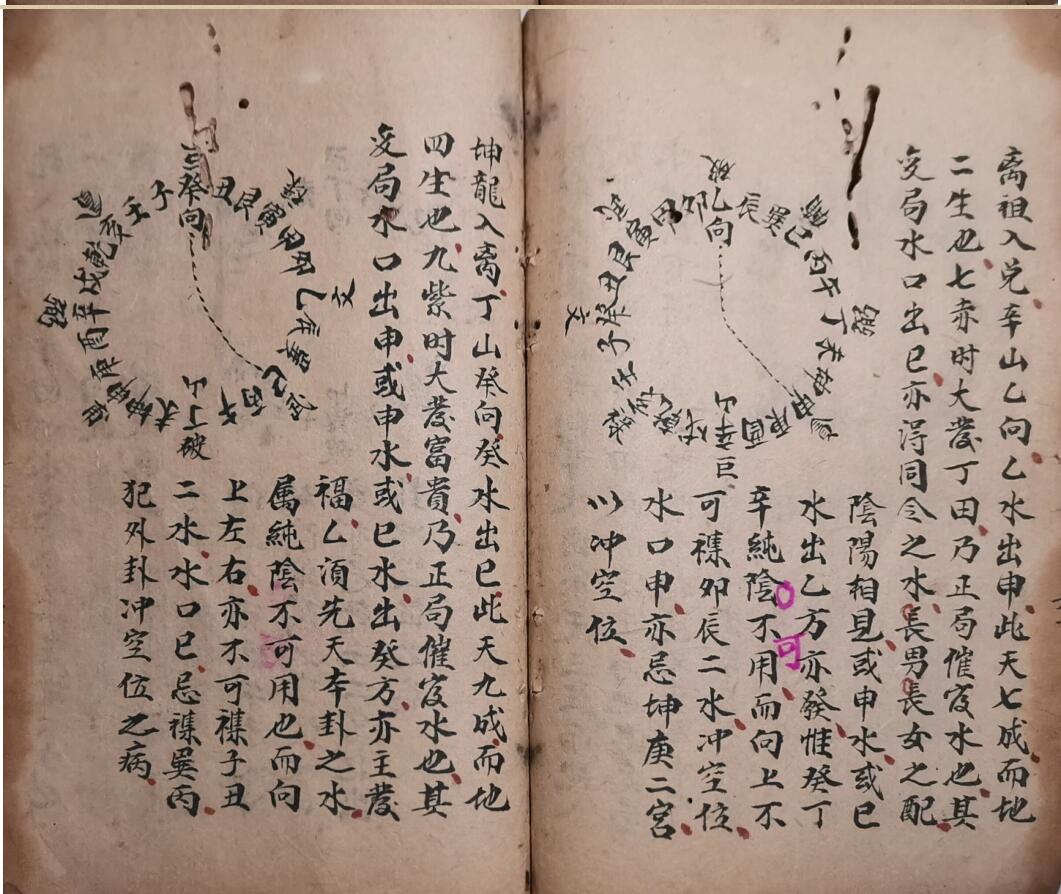 离祖入兑辛山乙向乙水出申此天七成而地
二生也七赤时大發丁田乃正局催官水也其
交局水口出巳亦得同仝之水長男長女之配
陰陽相見或申水或巳
水出乙方亦發惟癸丁
辛純陰不可用而向上不
可襍夘辰二水冲空位
水口申亦忌坤庚二宮
以冲空位
破
乙向
辰巽巳丙午丁未坤申庚酉辛山戌乾亥壬子癸丑艮寅甲夘
文
巨
坤龍入离丁山癸向癸水出巳此天九成而地
四生也九紫时大發富貴乃正局催官水也其
交局水口出申或申水或巳水出癸方亦主發
福乙須先天本卦之水
属純陰不可用也而向
上左右亦不可襍子丑
二水水口巳忌襍巽丙
犯外卦冲空位之病
癸向
丑艮寅甲夘乙辰巽巳丙午丁山未坤申庚酉辛戌乾亥壬子
文
破